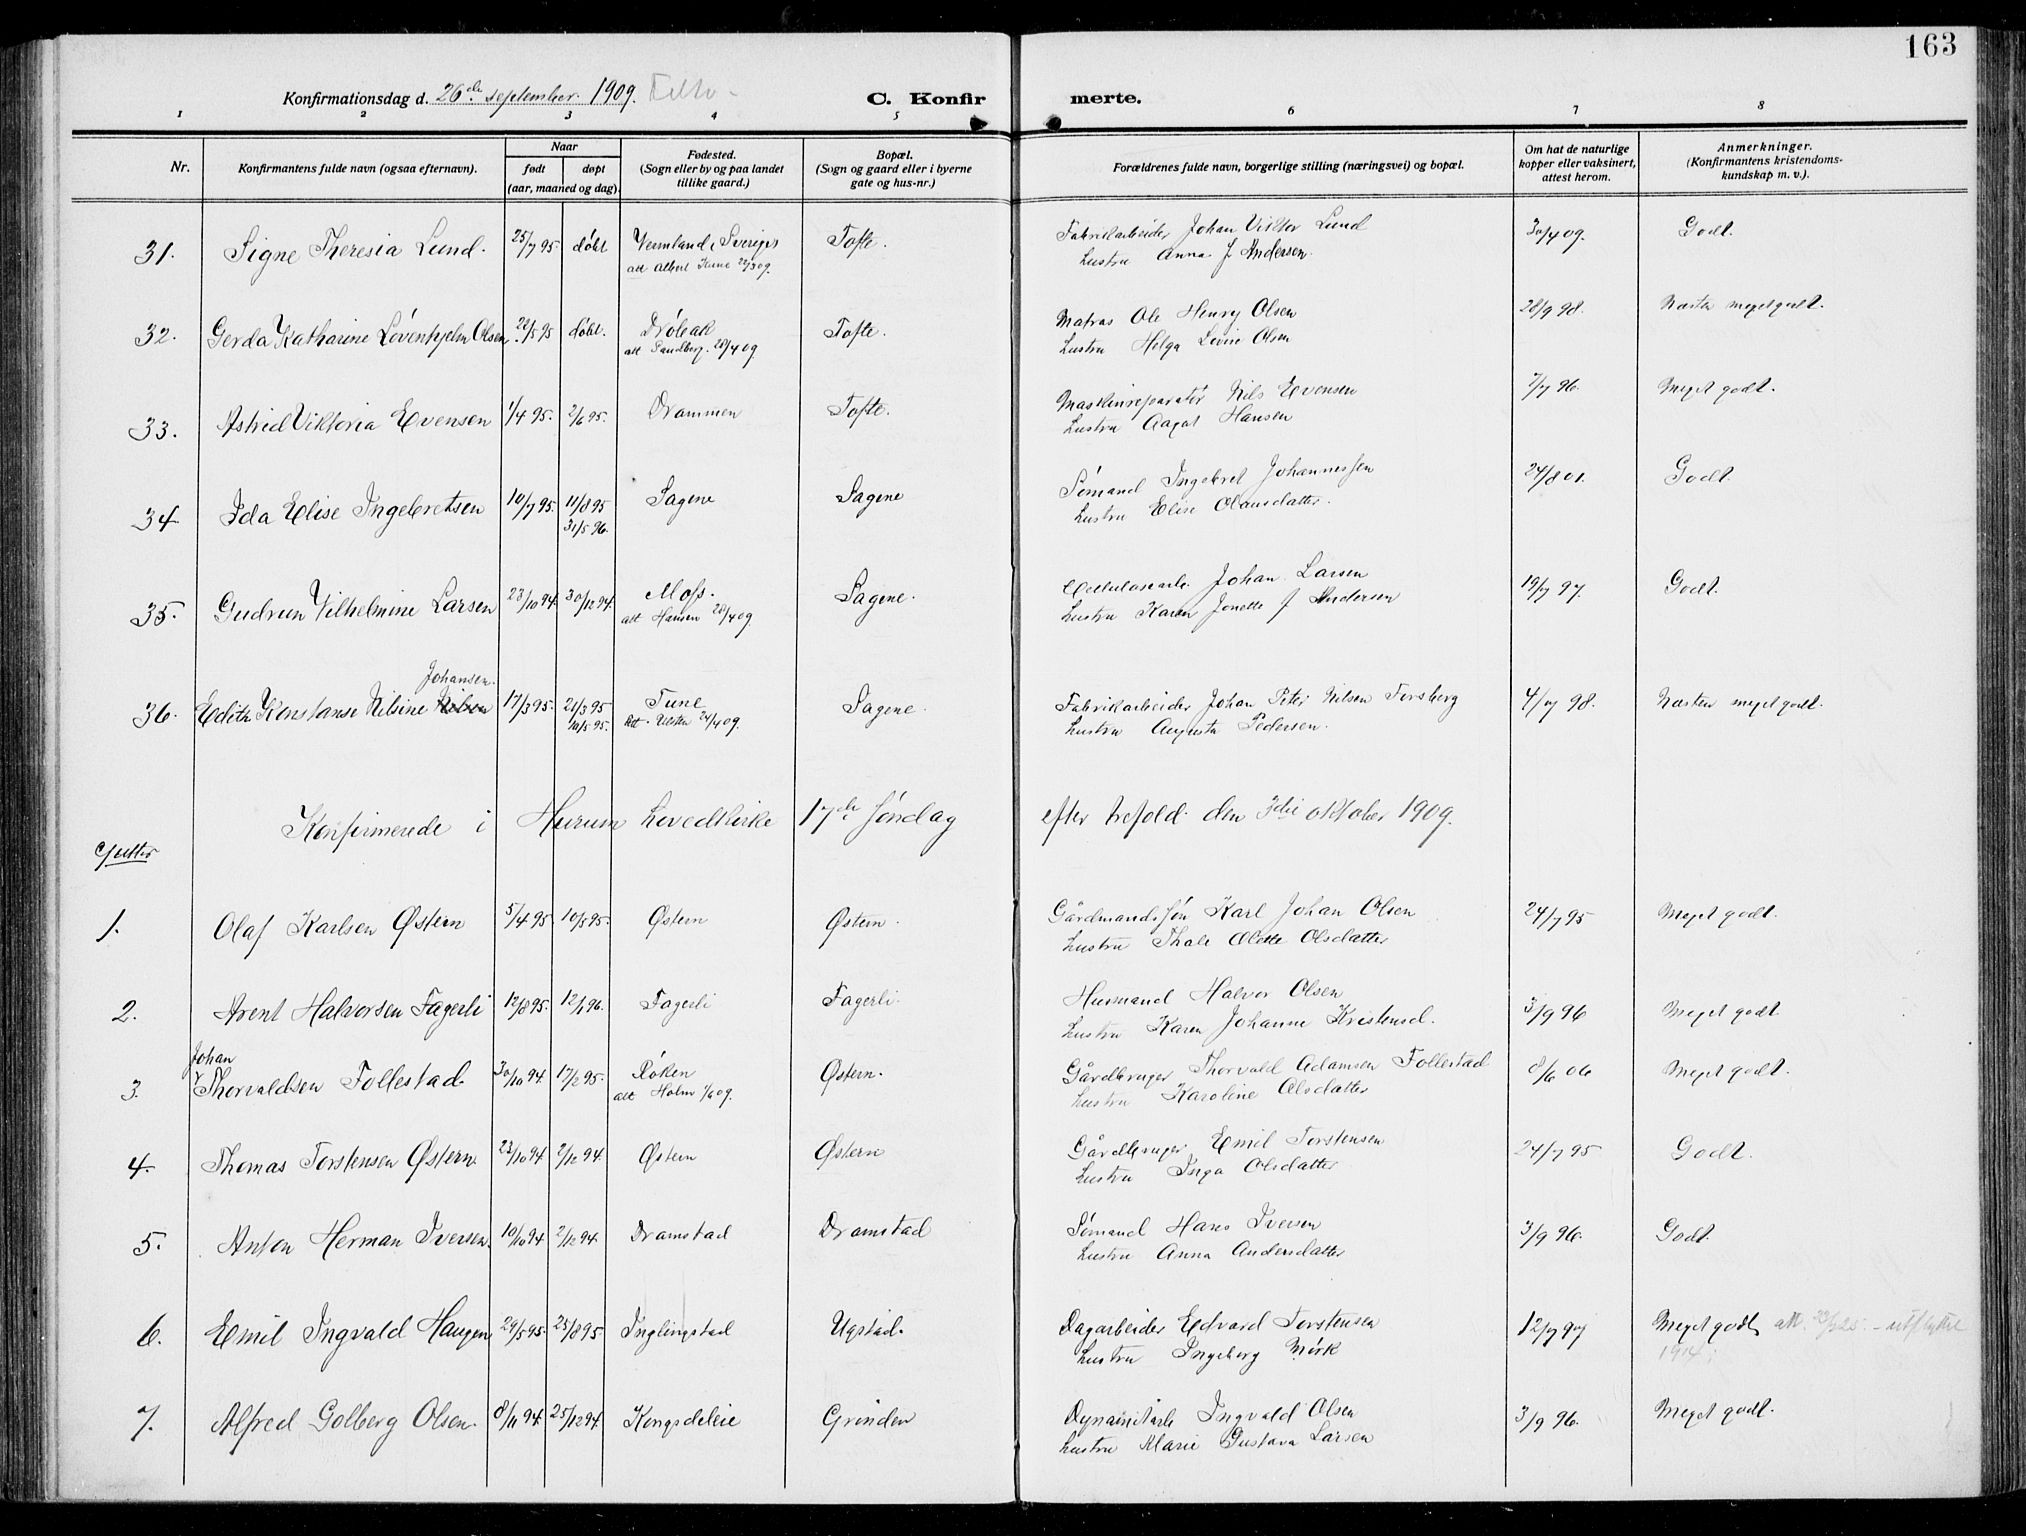 163
Konfirmationsdag d. 26de september 1909.
C. Konfirmerte.
1 2 3 4 5 6 7 8
Nr.
Konfirmantens fulde navn (ogsaa efternavn).
Naar
født døpt
(aar, maaned og dag).
Fødested.
(Sogn eller by og paa landet
tillike gaard.)
Bopæl.
(Sogn og gaard eller i byerne
gate og hus-nr.)
Forældrenes fulde navn, borgerlige stilling (næringsvei) og bopæl.
Om hat de naturlige
kopper eller vaksinert,
attest herom.
Anmerkninger.
(Konfirmantens kristendoms-
kundskap m. v.).
31. Signe Theresia Lund. 25/7 95. døbt Vermland, Sverige Tofte. Fabrikarbeider Johan Viktor Lund 30/4 09. Godt.
att 22/3 09. hustru Anna J Andersen.
32. Gerda Katharine Løvenhjelm Olsen. 22/5 95 døbt. Drøbak Tofte. Matros Ole Henry Olsen 28/9 98. Næsten meget godt.
att Sandberg. 28/4 09 hustru Helga Lovise Olsen
33. Astrid Viktoria Evensen 1/4 95. 2/6 95. Drammen Tofte. Maskinreparatør Nils Evensen 7/7 96. Meget godt.
hustru Aagot Hansen
34 Ida Elise Ingebretsen 10/7 95. 11/8 95 Sagene Sagene Sømand Ingebret Johannessen 24/8 01. Godt.
31/5 96. hustru Elise Olausdatter.
35. Gudrun Vilhelmine Larsen 23/10 94. 30/12 94. Moss. Sagene. Cellulosearb. Johan Larsen 19/7 97. Godt.
att Hansen 28/4 09. hustru Karen Jonette J Andersen
Johansen.
36. Edith Konstanse Nilsine Nilsen 17/3 95. 21/3 95 Tune Sagene. Fabrikarbeider Johan Peter Nilsen Forsberg 4/7 98. Næsten meget godt.
19/5 95. att. 24/4 09. hustru Augusta Pedersen.
Konfirmerede i Hurum hovedkirke 17de søndag efter trefold. den 3die oktober 1909.
Gutter
1. Olaf Karlsen Østern 5/4 95. 10/5 95. Østern Østern. Gårdmandssøn Karl Johan Olsen 24/7 95 Meget godt.
hustru Thale Olette Olsdatter
2. Arent Halvorsen Fagerli 12/8 95. 12/1 96. Fagerli Fagerli. Husmand Halvor Olsen 3/9 96 Meget godt.
hustru Karen Johanne Kristensd.
Johan
3. Thorvaldsen Follestad 30/10 94. 17/2 95. Røken Østern. Gårdbruger Thorvald Adamsen Follestad 8/6 06 Meget godt.
att Holm 1/6 09. hustru Karoline Olsdatter
4. Thomas Torstensen Østern. 23/10 94 2/12 94. Østern Østern Gårdbruger Emil Torstensen 24/7 95 Godt.
hustru Inga Olsdatter
5. Anton Herman Iversen. 10/10 94. 2/12 94. Dramstad Dramstad Sømand Hans Iversen 3/9 96. Godt.
hustru Anna Andersdatter
6. Emil Ingvald Haugen 29/5 95. 25/8 95 Inglingstad Ugstad. Dagarbeider Edvard Torstensen 12/7 97 Meget godt, att. - utflyttet
hustru Ingeborg Mørk 1914.
7. Alfred Golberg Olsen. 8/11 94. 25/12 94. Kongsdeleie Grinden Dynamitarb. Ingvald Olsen 3/9 96. Meget godt.
hustru Marie Gustava Larsen